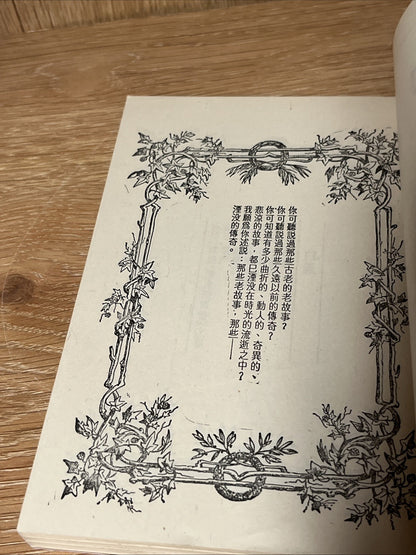 你可聽說過那些古老的老故事?
你可聽說過那些久遠以前的傳奇?
你可知道有多少曲折的、動人的、奇異的、
悲涼的故事,都已湮没在時光的流逝之中?
我願為你述說:那些老故事,那些——
湮没的傳奇。